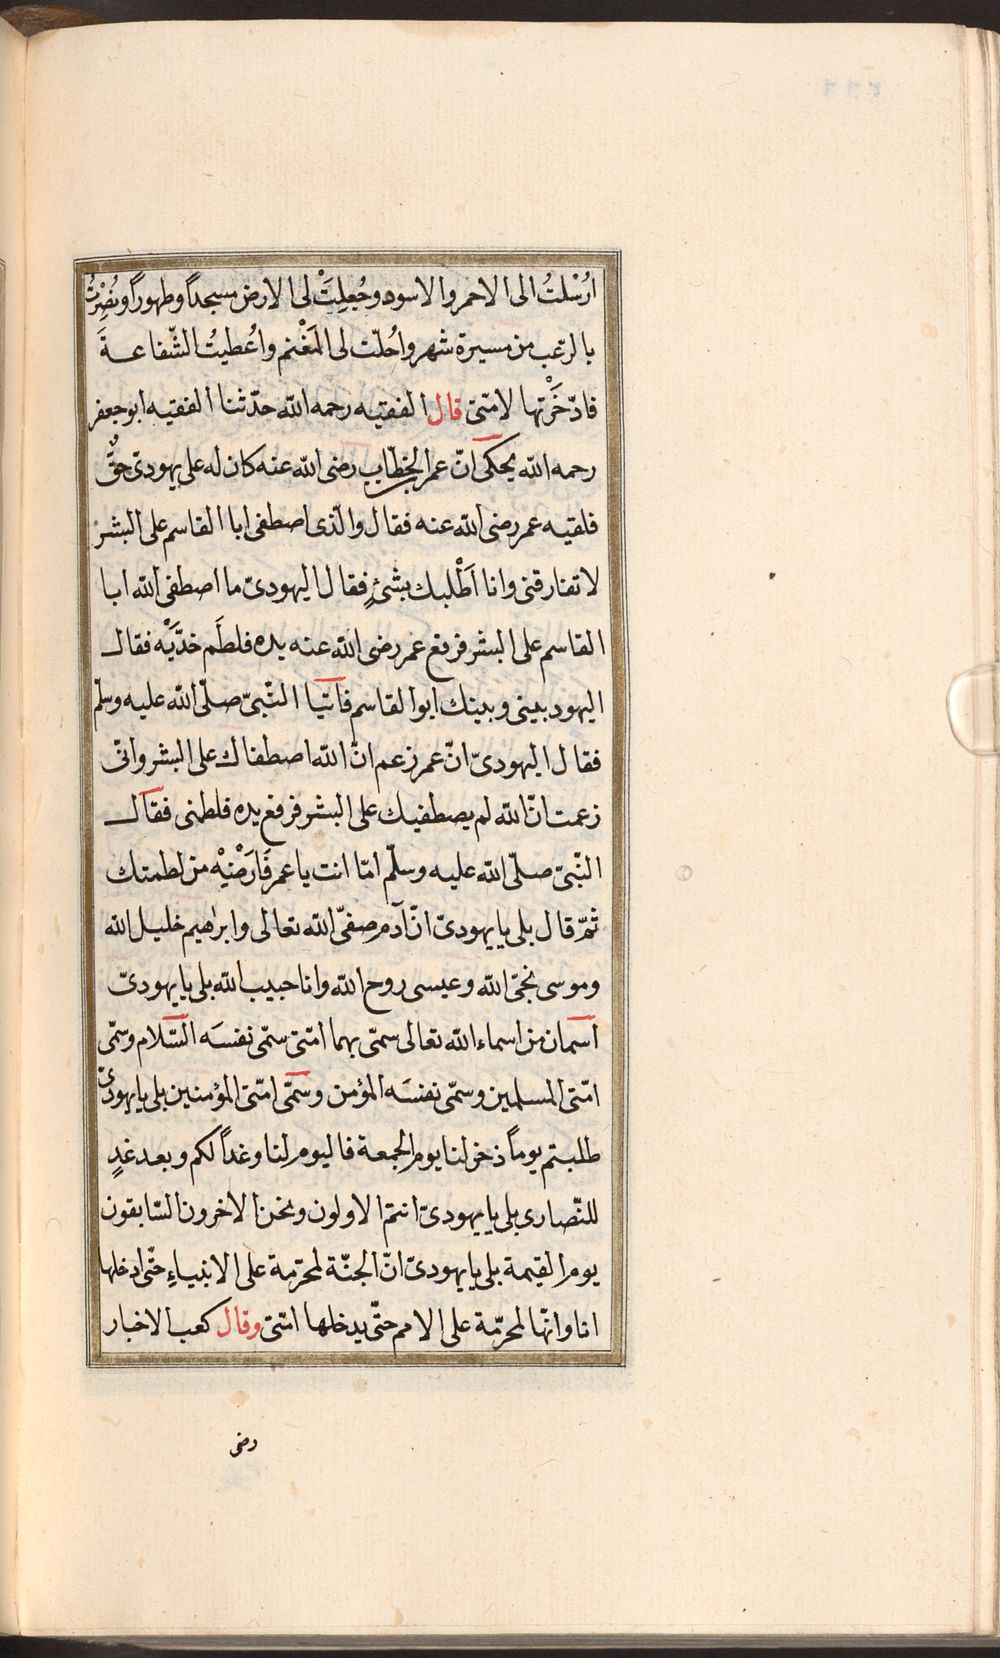 ارُسْلتُ الى الاحمر والاسود وجُعِلِتَْ لى الارض مسجداً وطهوراً ونُصِرْتُ
بالرّعب من مسيرة شهر واُحلّت لى المَغْنم واُعطيتُ الشّفاعةَ
فادّخَرْتها لامّتى قال الفقيه رحمه الله حدّثنا الفقيه ابو جعفر
رحمه الله يحكى انّ عمر الخطّاب رضى الله عنه كان له على يهودىّ حقٌّ
فلقيه عمر رضى الله عنه فقال والّذى اصطفى ابا القاسم على البشر
لا تفارقنى وانا اَطْلبك بشئٍ فقال اليهودىّ ما اصطفى الله ابا
القاسم على البشر فرفع عمر رضى الله عنه يده فلطَم خدَّيْه فقال
اليهود بينى وبينك ابو القاسم فاتيا النّبىّ صلّى الله عليه وسلّم
فقال اليهودىّ انّ عمر زعم انّ الله اصطفاك على البشر وانّى
زعمت انّ الله لم يصطفيك على البشر فرفع يده فلطمنى فقال
النّبىّ صلّى الله عليه وسلّم امّا انت يا عمر فَارَضْيِهْ من لطمتك
ثمّ قال بلى يا يهودىّ انّ آدم صفىّ الله تعالى وابرٰهيم خليل الله
وموسى نجىّ الله وعيسى روح الله وانا حبيب الله بلى يا يهودىّ
اسمان من اسماء الله تعالى سمّى بهما امّتى سمّى نفسَه السّلام وسمّى
امّتى المسلمين وسمّى نفسَه المؤمن وسمّى امّتى المؤمنين بلى يا يهودىّ
طلبتم يوماً ذخر لنا يوم الجمعة فاليوم لنا وغداً لكم وبعد غدٍ
للنّصارى بلى يا يهودىّ انتم الاولون ونحن الاخرون السّابقون
يوم القيمة بلى يا يهودىّ انّ الجنّة لمحرّمة على الانبياءِ حتّى ادخلها
انا وانّها لمحرّمة على الامم حتّى يدخلها امّتى وقال كعب الاخبار
رضى